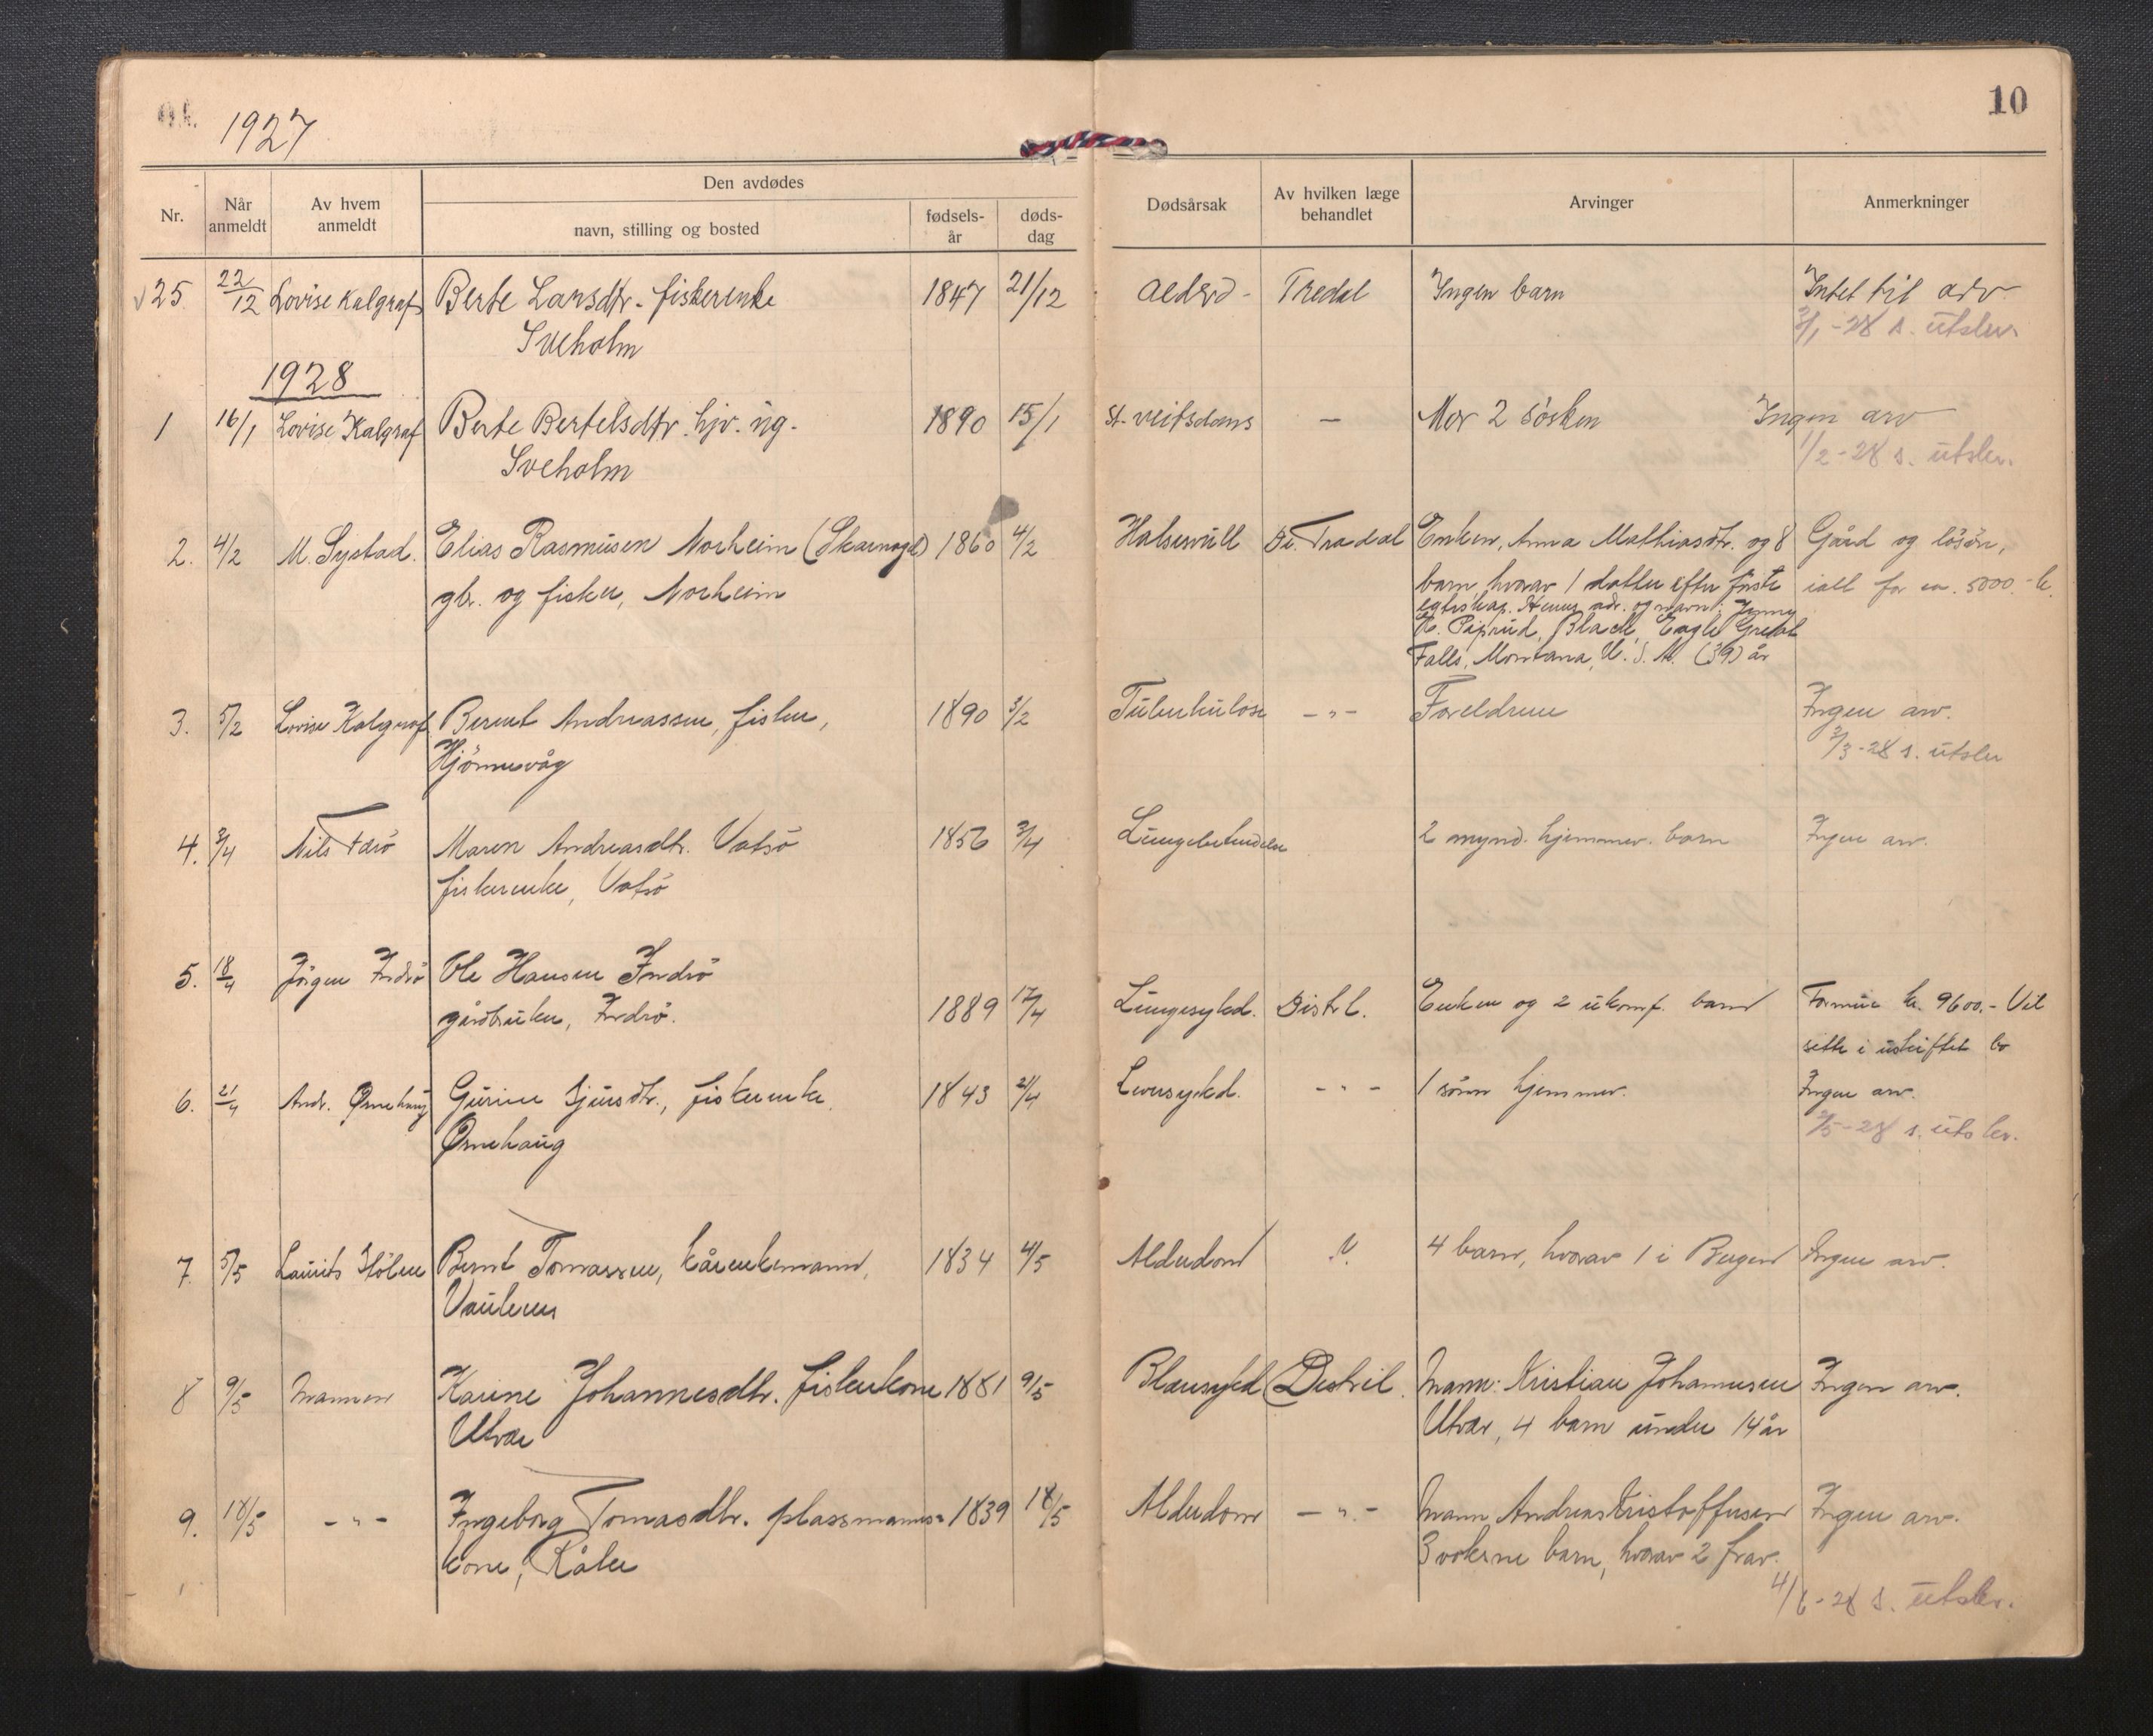 1927
10
Nr.
Når anmeldt
Av hvem anmeldt
Den avdødes
navn, stilling og bosted
fødsels-år
døds-dag
Dødsårsak
Av hvilken læge behandlet
Arvinger
Anmerkninger
25 22/12 Lovise Kalgraf Berte Larsdtr. fiskerenke 1847 21/12 Alderd- Tredal Ingen barn Intet til arv
Sveholm -28 s. utslev.
1928
1 16/1 Lovise Kalgraf Berte Bertelsdtr. hjv. ug. 1890 15/1 St. veitsdans — Mor 2 søsken Ingen arv
Sveholm 1/2-28 s. utslev.
2. 4/2 M. Systad. Elias Rasmusen Norheim 1860 4/2 Tradal Enken, Anna Mathiasdtr. og 8 Gård og løsøre,
gbr. og fisker, Norheim barn, hvorav 1 datter efter første ialt for ca. 5000.- k.
egteskap. Hennes adr. og navn: Jenny
Piprud, Black Eagle Great
Falls, Montana, U.S.A. (39) år
3. 5/2 Lovise Kalgraf Bernt Andreassen, fisker, 1890 3/2 Tuberkulose -"- Foreldrene Ingen arv.
Hjønnevåg 2/3-28 s. utslev
4. 3/4 Nils Maren Andreasdtr. Vatsø 1856 3/4 Lungebetendelse 2 mynd. hjemmev. barn Ingen arv.
fiskerenke, Vatsø
5. 18/4 Jørgen Indrø Ole Hansen Indrø
gårdbruker, Indrø. 1889 17/4 Lungesykd. Distr.l. Enken og 2 ukonf. barn Formue kr. 9600.- Vil
sitte i uskiftet bo
6. 21/4 Andr. Ørnehaug Gurine Sjursdtr., fiskerenke 1843 21/4 Leversykd. -"- 1 sønn hjemmev. Ingen arv.
Ørnehaug 2/5-28 s. utslev.
7. 5/5 Laurits Stølen Bernt Tomassen, kårenkemann, 1834 4/5 Alderdom 4 barn, hvorav 1 i Bergen Ingen arv.
8 9/5 Mannen Karine Johannesdtr. fiskerkone 1881 9/5 Mann: Kristian Johannesen Ingen arv.
Utvær Utvær, 4 barn under 14 år
9. 18/5 -"- Ingeborg Tomasdtr. plassmanns- 1839 18/5 Alderdom -"- Mann Andreas Kristoffersen Ingen arv.
kone, Kåler 3 voksne barn, hvorav 2 frav.
4/6-28 s. utslev.